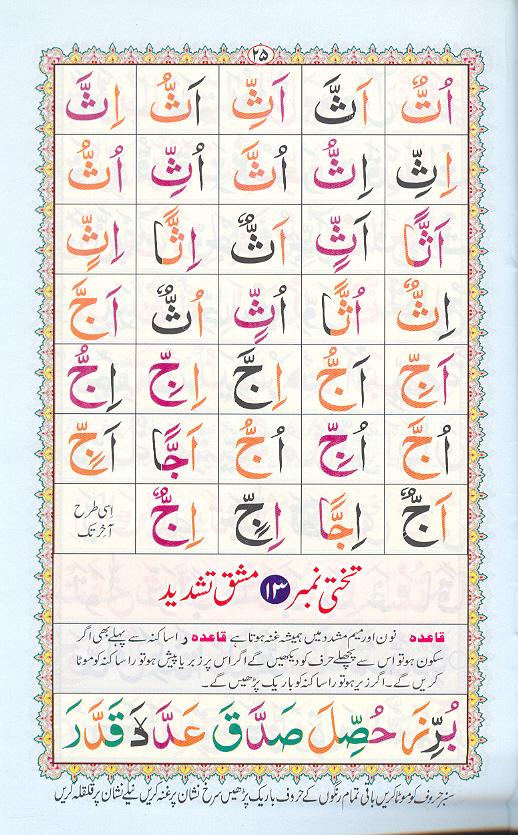 ۲۵
اُتٌّ اَثَّ اَثِّ اَثُّ اِثَّ
اِثِّ اِثُّ اُثَّ اُثِّ اُثُّ
اَثًّا اَثٍّ اَثٌّ اِثًّا اِثٍّ
اِثٌّ اُثًّا اُثٍّ اُثٌّ اَجَّ
اَجِّ اَجُّ اِجَّ اِجِّ اِجُّ
اُجَّ اُجِّ اُجُّ اَجًّا اَجٍّ
اَجٌّ اِجًّا اِجٍّ اِجٌّ اسی طرح
آخر تک
تختی نمبر ۱۳ مشق تشدید
قاعدہ نون اور میم مشدد میں ہمیشہ غنہ ہوتا ہے قاعدہ ر اساکنہ سے پہلے بھی اگر
سکون ہو تو اس سے پچھلے حرف کو دیکھیں گے اگر اس پر زبر یا پیش ہو تو را ساکنہ کو موٹا
کریں گے۔ اگر زیر ہو تو را ساکنہ کو باریک پڑھیں گے۔
بُرِّزَ حُصِّلَ صَدَّقَ قَدَّرَ
سبز حروف کو موٹا کریں باقی تمام رنگوں کے حروف باریک پڑھیں سرخ نشان پر غنہ کریں نیلے نشان پر قلقلہ کریں